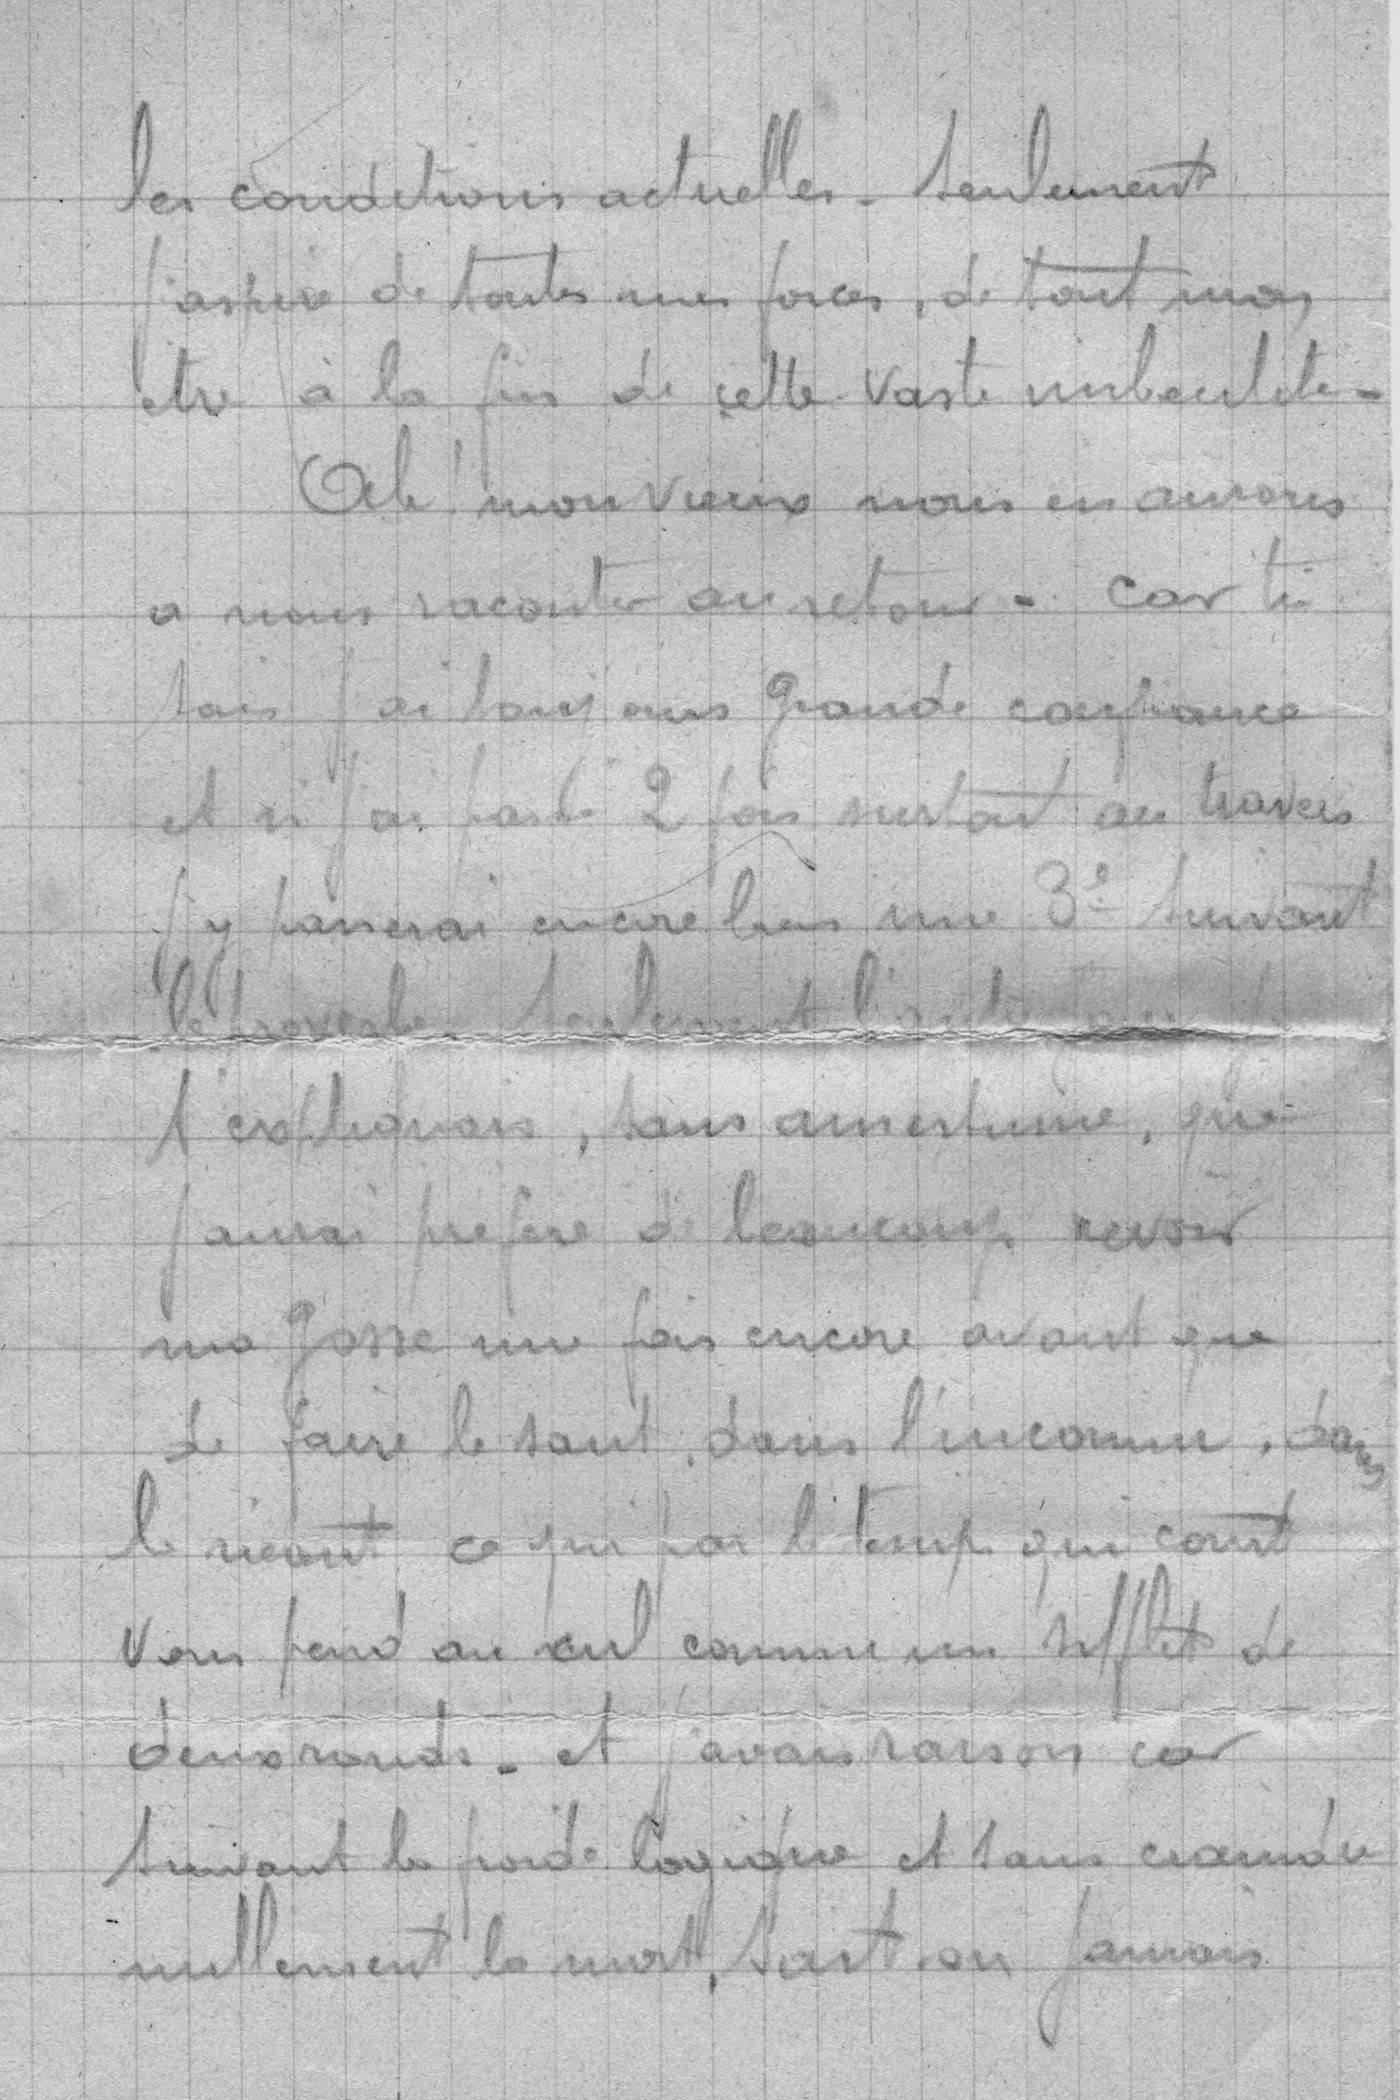 les conditions actuelles - Seulement
j'aspire de toutes mes forces, de tout mon
etre à la fin de cette vaste imbecilité -
Ah ! mon vieux nous en aurons
a nous raconter au retour - Car tu
sais j'ai toujours grande confiance
et si j'ai passé 2 fois surtout au travers
j'y passerai encore bien une 3e suivant
le proverbe. Seulement l'autre jour je
t'expliquais, sans amertume, que
j'aurai préféré de beaucoup revoir
ma Gosse une fois encore avant que
de faire le saut dans l'inconnu, dans
le néant ce qui par le temps qui court
vous pend au cul comme un sifflet de
deux ronds - et j'avais raison car
suivant la froide logique et sans craindre
nullement la mort, sait-on jamais